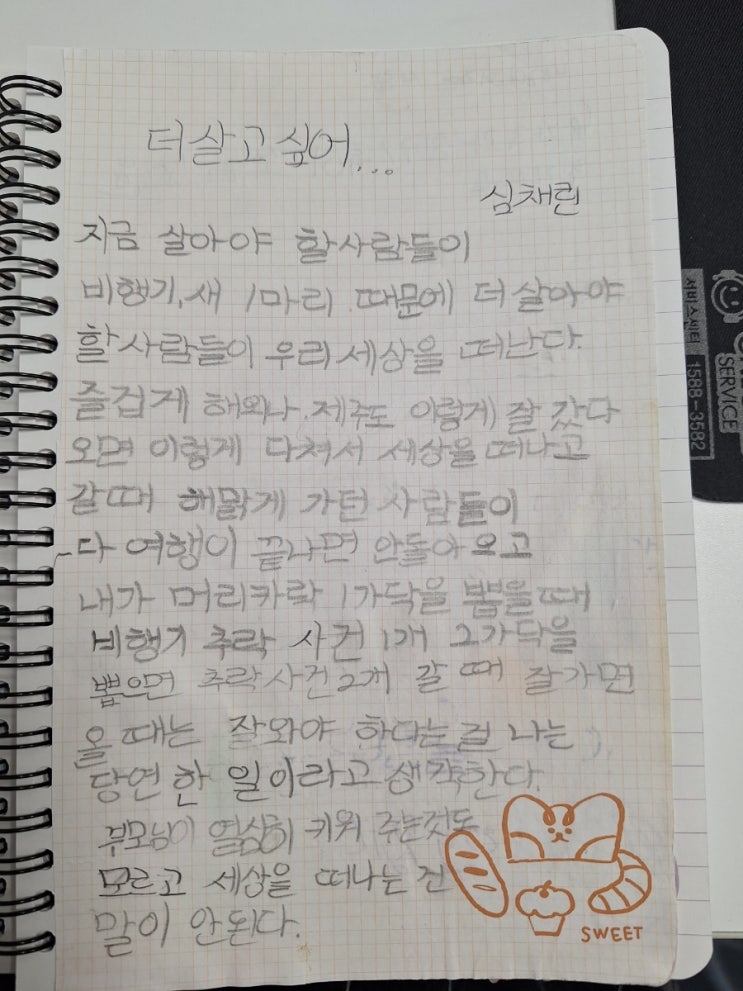 더 살고 싶어...
심채린
지금 살아야 할사람들이
비행기, 새 1마리 때문에 더 살아야
할 사람들이 우리 세상을 떠난다.
즐겁게 해외나 제주도 이렇게 잘 갔다
오면 이렇게 다쳐서 세상을 떠나고
갈때 해맑게 가던 사람들이
다 여행이 끝나면 안돌아 오고
내가 머리카락 1가닥을 뽑을 때
비행기 추락 사건 1개 2가닥을
뽑으면 추락 사건 2개 갈 때 잘가면
올 때는 잘와야 하다는 걸 나는
당연한 일이라고 생각한다.
부모님이 열심히 키워 주는것도
모르고 세상을 떠나는 건
말이 안된다.
SWEET
서비스센터 1588-3582
SERVICE